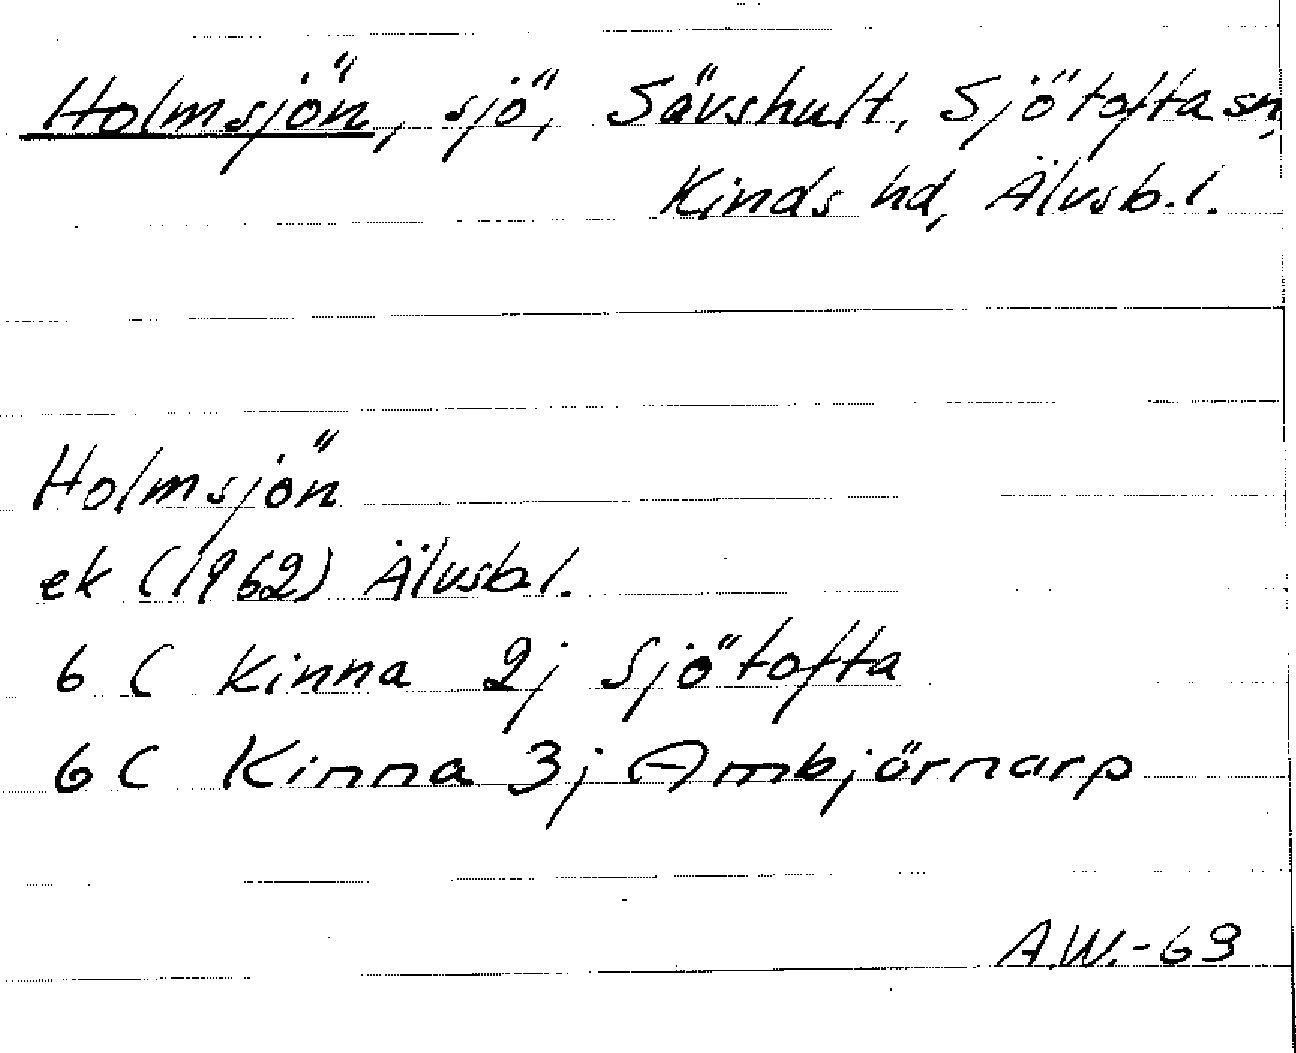 Holmsjön, sjö, Sävshult, Sjötofta sn,
Kinds hd, Älvsb.l.
Holmsjön
ek (1962) Älvsb.l.
6 C Kinna 2j Sjötofta
6 C Kinna 3j Ambjörnarp
A.W.-63